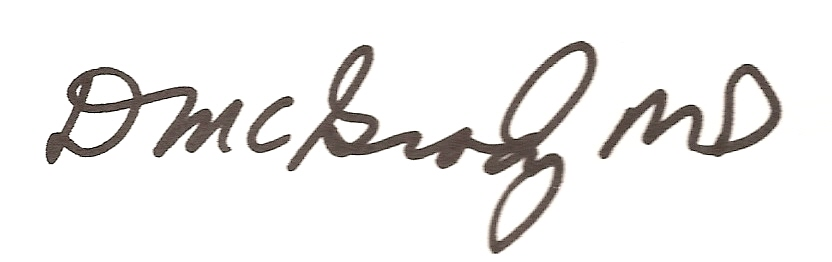 D McGrady MD